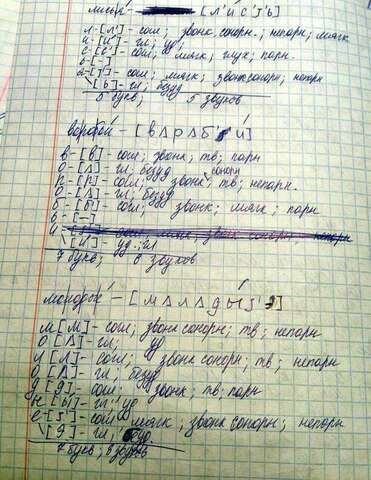 лисья - [л'и́с'j'ь]
л-[л']-согл; звонк сонорн.; непарн; мягк
и-[и́]-гл; уд
с-[с']-согл; мягк; глух; парн.
ь-[-]
я-[j']-согл; мягк; звонк сонорн; непарн
\[ь]-гл; безуд
5 букв, 5 звуков
воробьи - [вΛрΛб'j'и́]
в-[в]-согл; звонк; тв; парн
о-[Λ]-гл; безуд
р-[р]-согл; звонк; сонорн тв; непарн.
о-[Λ]-гл; безуд
б-[б']-согл; звонк; мягк; парн
ь-[-]
и
\[и́]-уд; гл
7 букв; 6 звуков
молодые - [мΛлΛды́j'э]
м[м]-согл; звонк сонорн; тв; непарн
о[Λ]-гл; уд
л[л]-согл; звонк сонорн; тв; непарн
о[Λ]-гл; безуд
д[д]-согл; звонк; тв; парн
ы[ы́]-гл; уд
е-[j']-согл мягк, звонк сонорн; непарн
\[э]-гл; безуд.
7 букв; 8 звуков